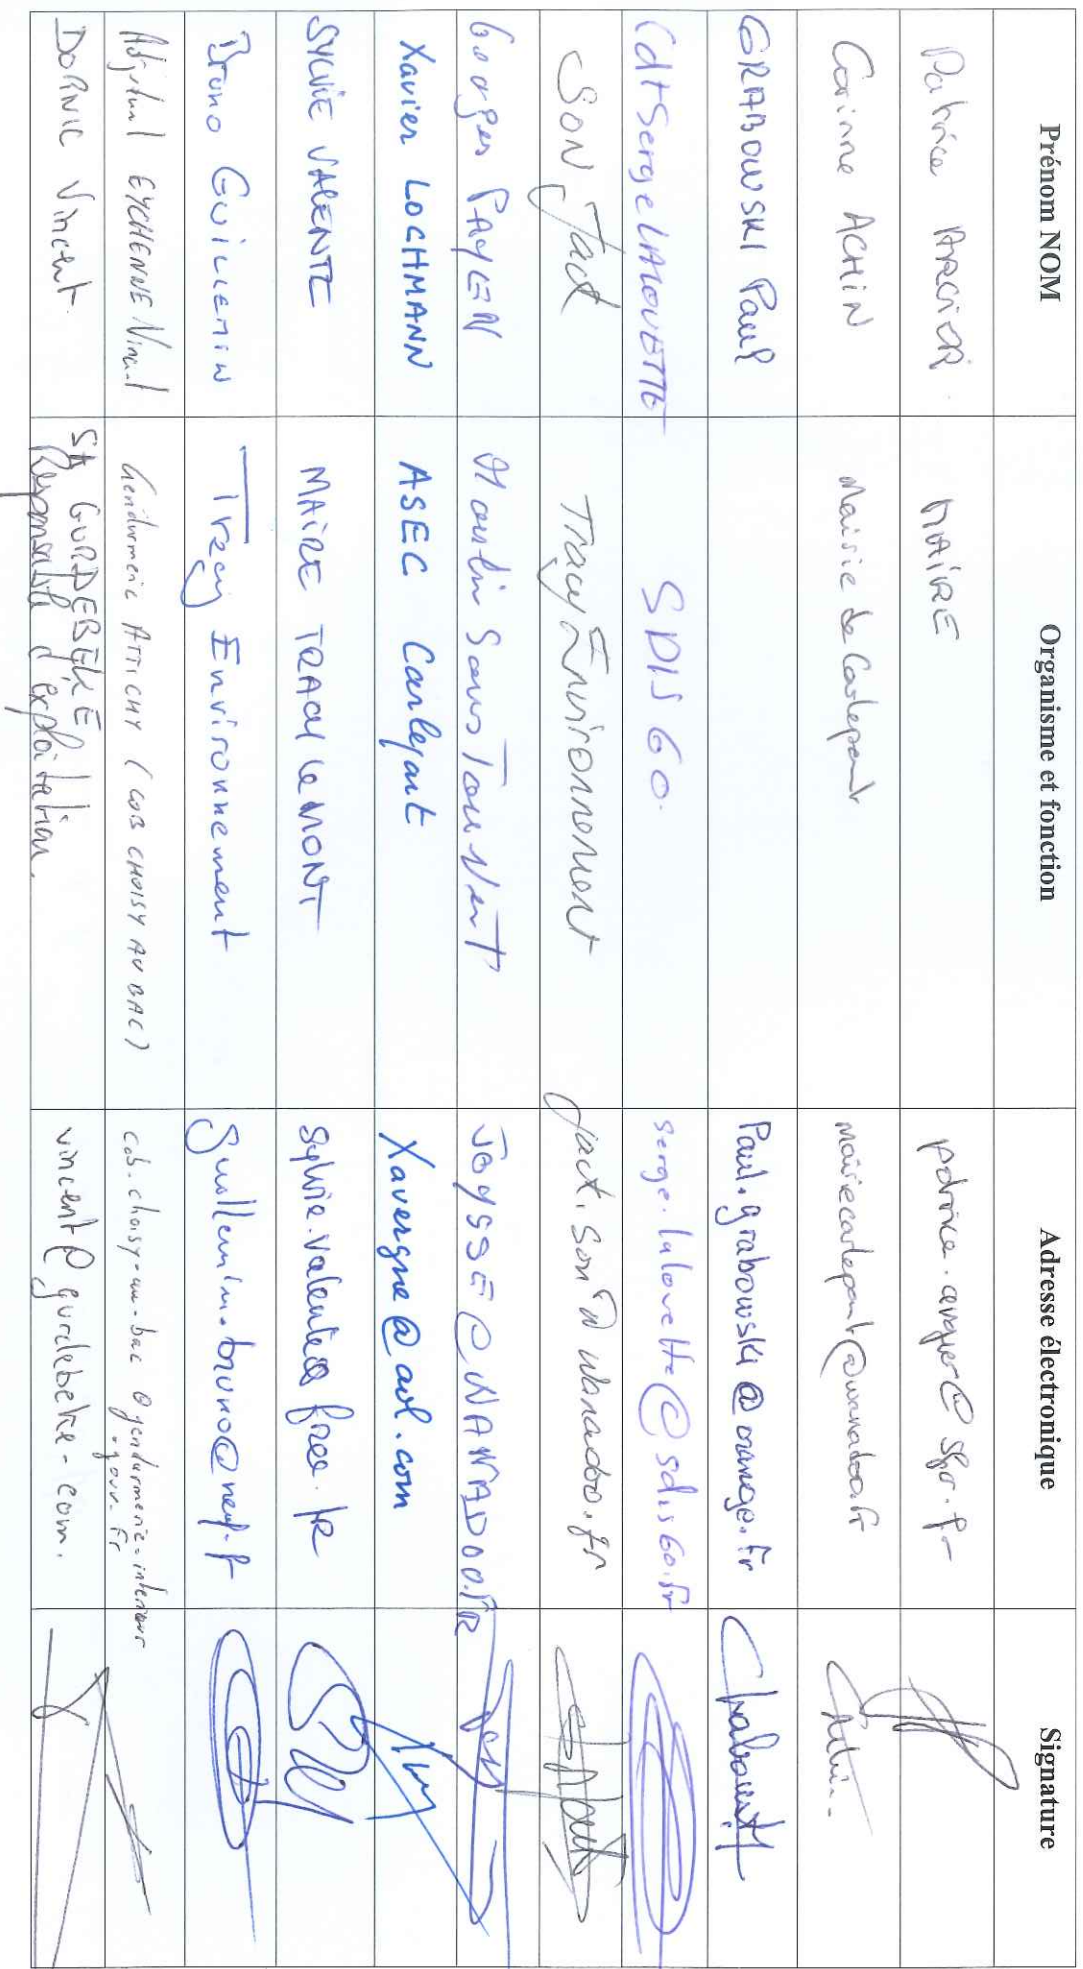 Prénom NOM Organisme et fonction Adresse électronique Signature
Patrice MAIRE
Corinne ACHIN Mairie de Carlepont mairiecarlepont@wanadoo.fr
GRABOWSKI Paul Paul.grabowski@orange.fr
Cdt Serge LALOUETTE SDIS 60. serge.lalouette@sdis60.fr
SON Jack Tracy Environnement jack.son@wanadoo.fr
Georges PAYEN Moulin Sous Touvent JOYSSE@WANADOO.FR
Xavier LOCHMANN ASEC Carlepont Xavergne@aol.com
SYLVIE VALENTE MAIRE TRACY le MONT Sylvie.valente@free.fr
Bruno GUILLEMIN Tracy Environnement Guillemin.bruno@neuf.fr
EYCHENNE Vincent Gendarmerie ATTICHY (COB CHOISY AU BAC) cob.choisy-au-bac@gendarmerie.interieur
.gouv.fr
DORNIC Vincent SA GURDEBEKE vincent@gurdebeke.com.
Responsable d'exploitation.